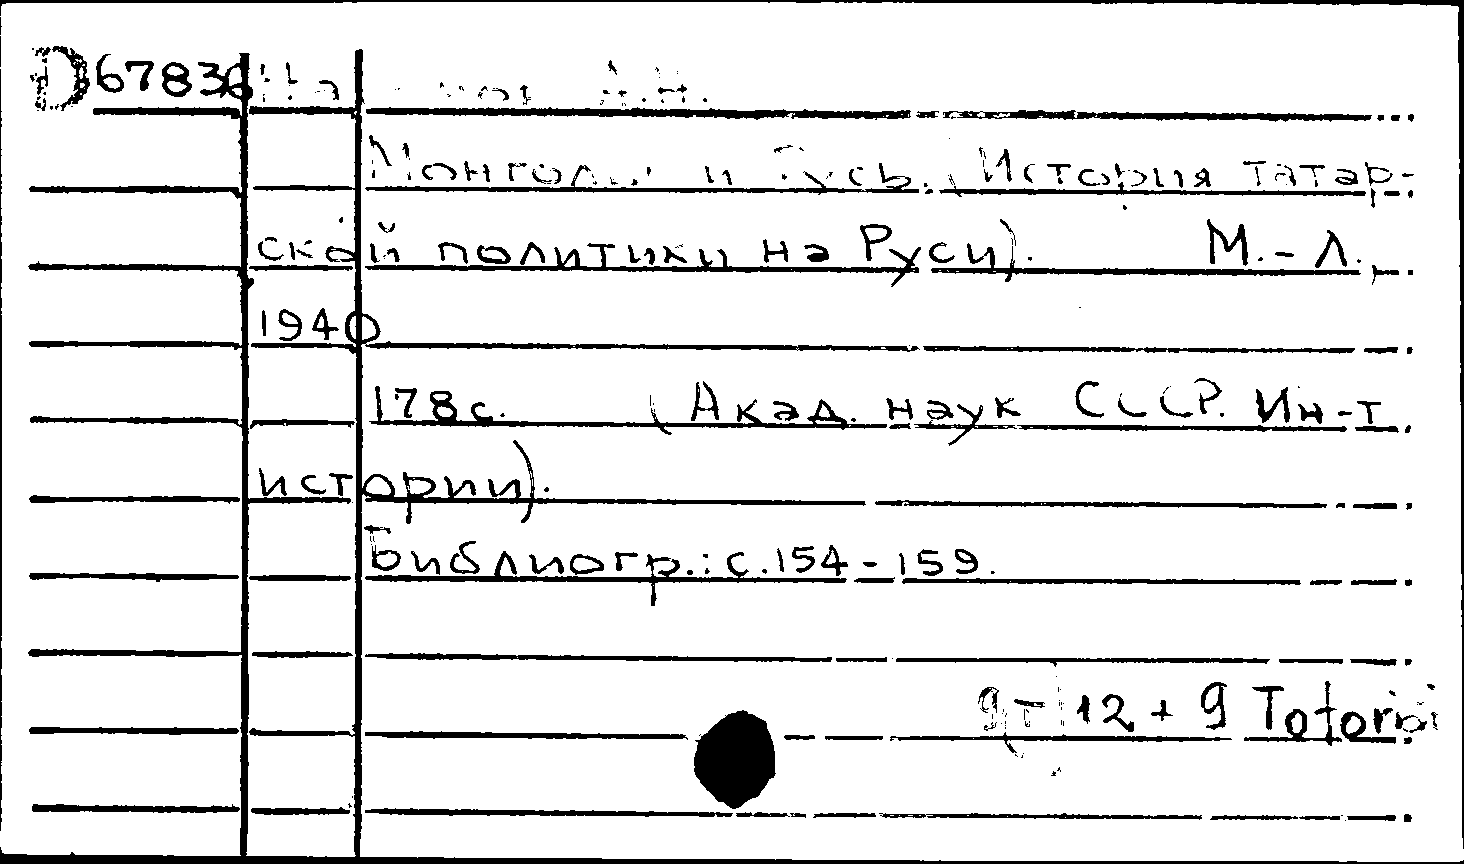 D 67836 А.Н.
Монголы и Русь. (История татар-
ской политики на Руси). М.-Л.,
1940
178с. (Акад. наук СССР. Ин-т
истории).
Библиогр.: с.154-159.
9(T)12 + 9